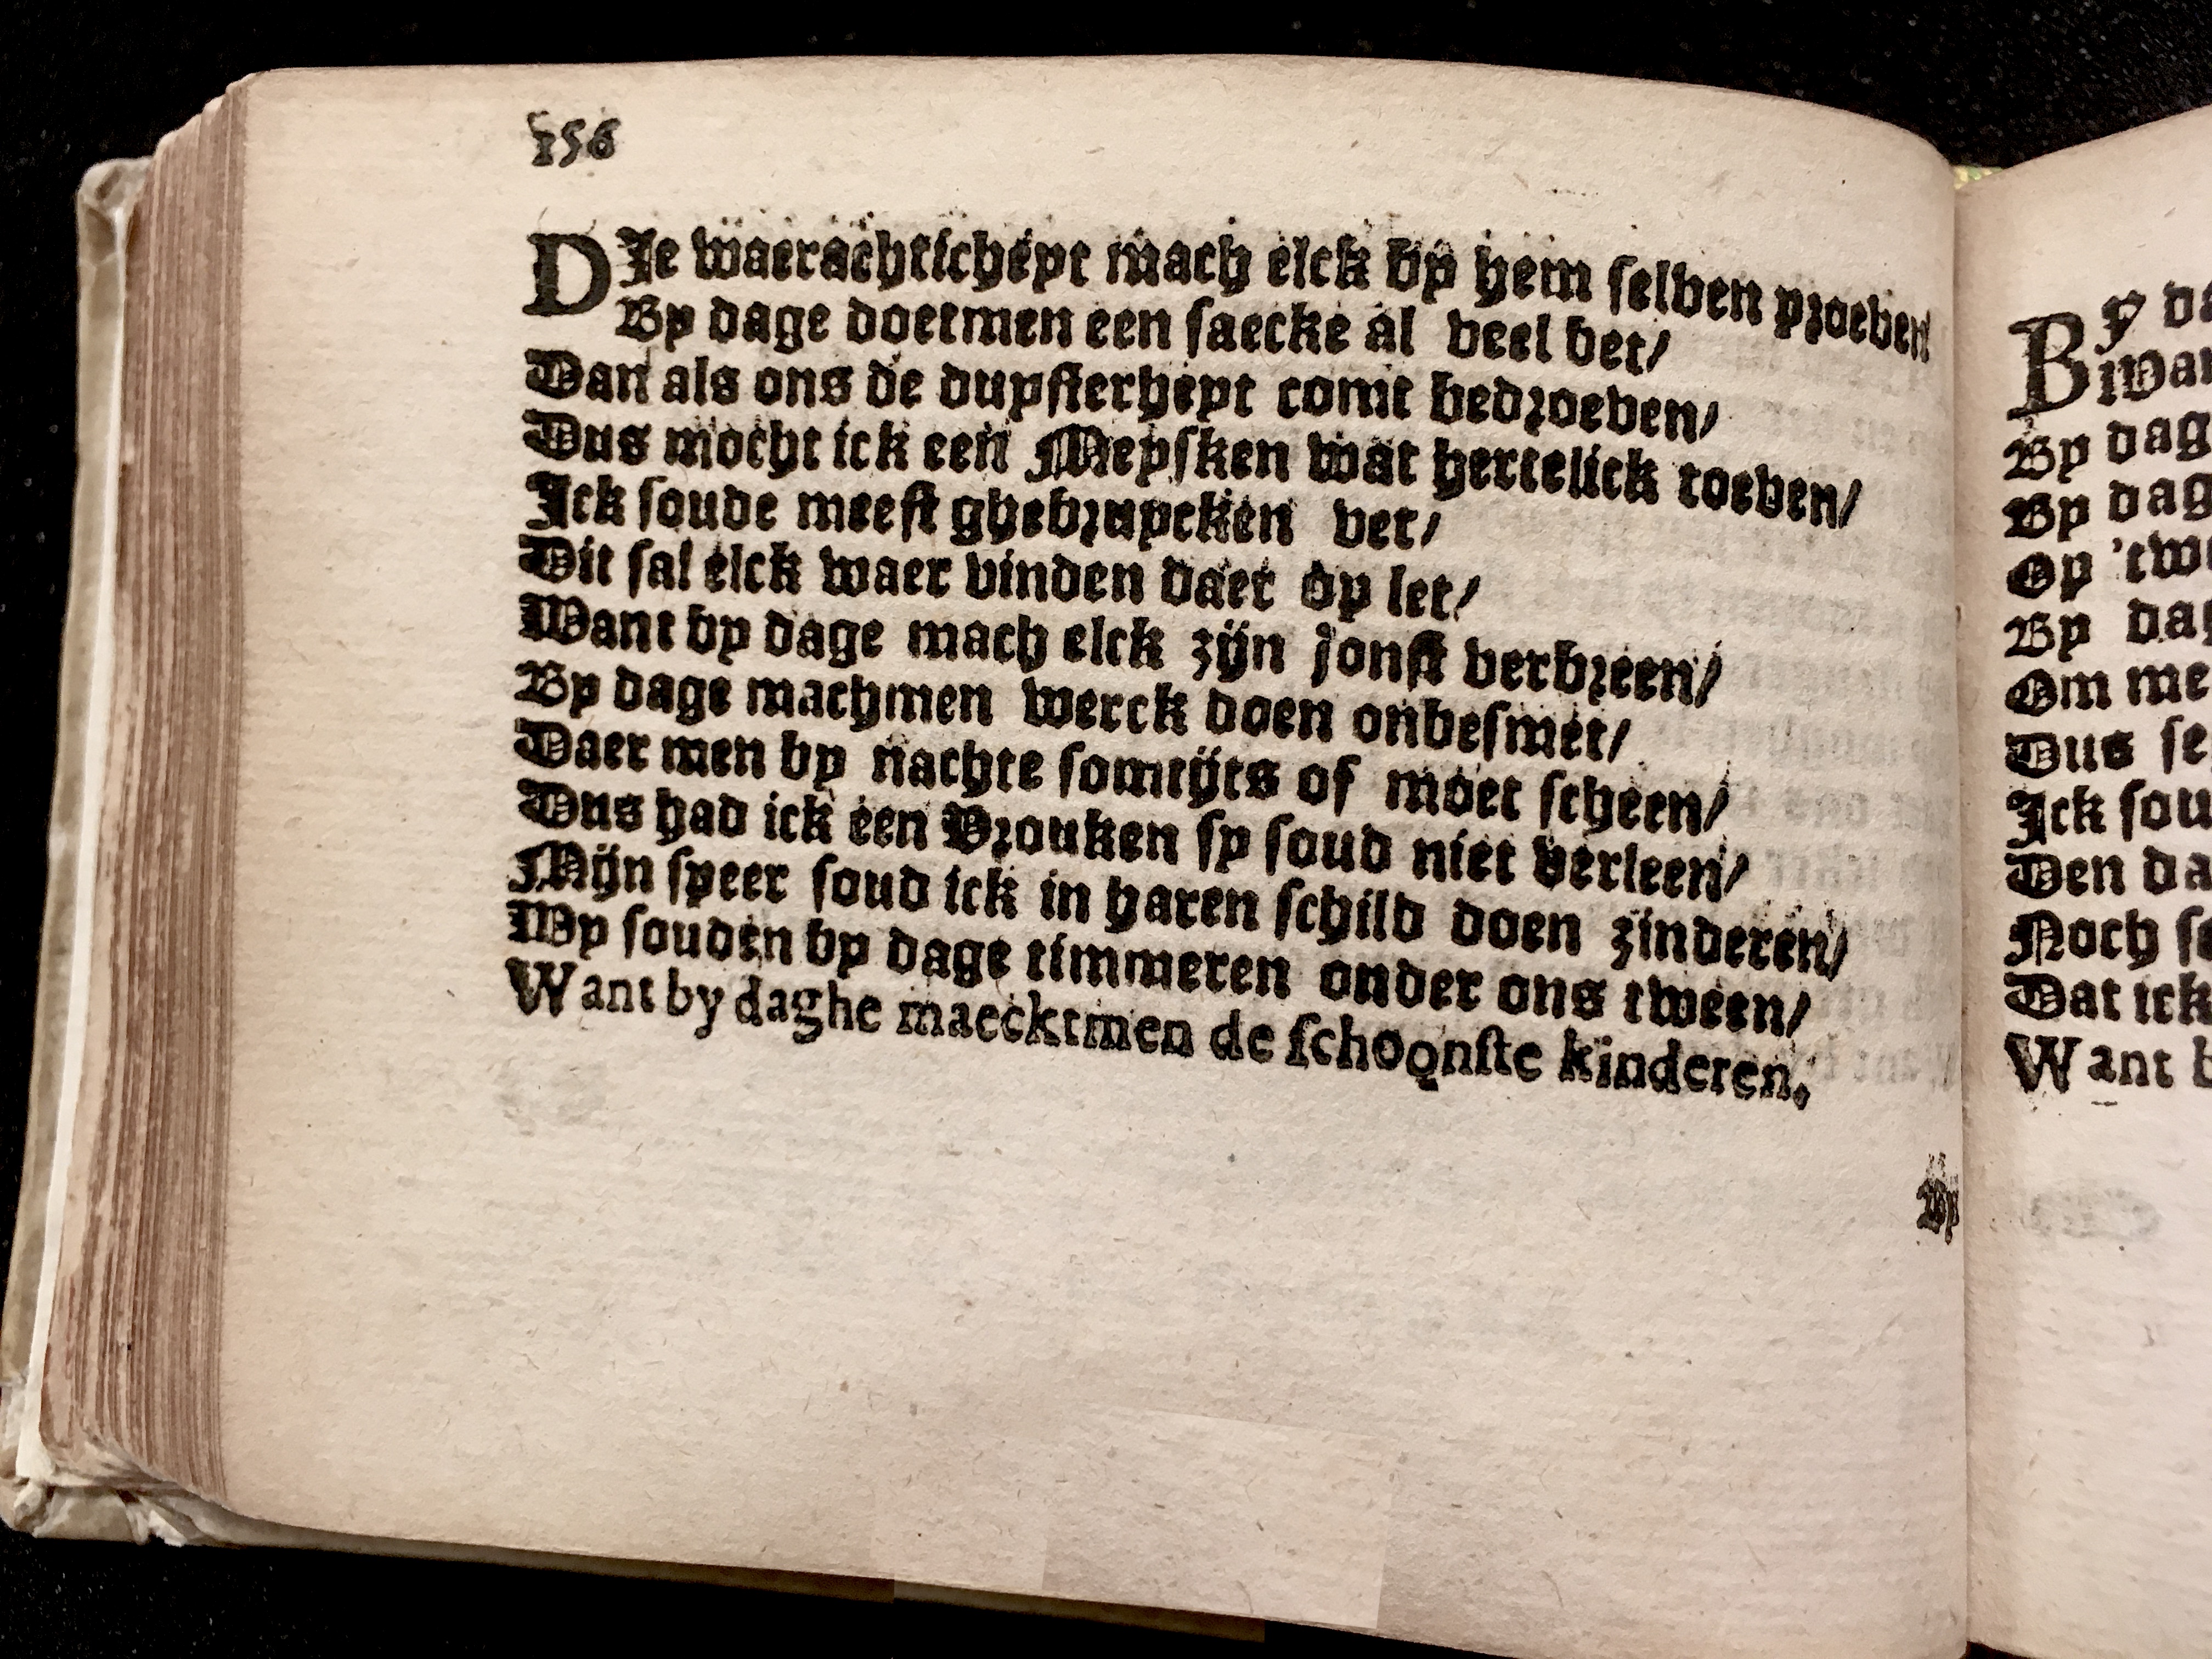 156
DIe waerachticheyt mach elck by hem selven proeven/
By dage doetmen een saecke al veel bet/
Dan als ons de duysterheyt comt bedroeven/
Dus mocht ick een Meysken wat hertelick toeven/
Ick soude meest ghebruycken vet/
Dit sal elck waer vinden daer op let/
Want by dage mach elck zijn jonst verbreen/
By dage machmen werck doen onbesmet/
Daer men by nachte somtijts of moet scheen/
Dus had ick een Vrouken sy soud niet verleen/
Mijn speer soud ick in haren schild doen zinderen/
Wy souden by dage timmeren onder ons tween/
Want by daghe maecktmen de schoonste kinderen.
By
By
Bivan
By dag
By dag
Op 'twe
By dag
Om me
Dus se
Ick sou
Den da
Noch se
Dat ick
Want b